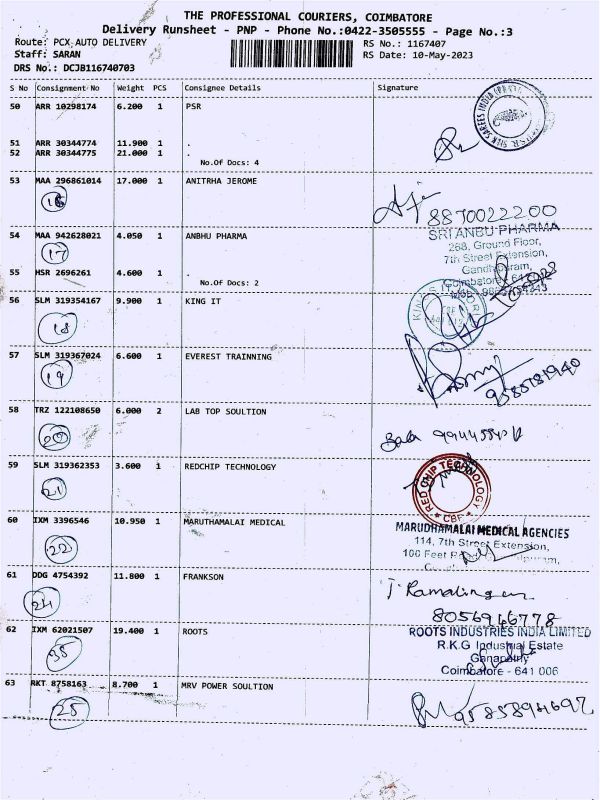 THE PROFESSIONAL COURIERS, COIMBATORE
Delivery Runsheet - PNP - Phone No.:0422-3505555 - Page No.:3
Route: PCX AUTO DELIVERY RS No.: 1167407
Staff: SARAN RS Date: 10-May-2023
DRS No.: DCJB116740703
S No Consignment No Weight PCS Consignee Details Signature
50 ARR 10298174 6.200 1 PSR
51 ARR 30344774 11.900 1 .
52 ARR 30344775 21.000 1 .
No.Of Docs: 4
53 MAA 296861014 17.000 1 ANITRHA JEROME
8870022200
54 MAA 942628021 4.050 1 ANBHU PHARMA
17
SRI ANBU PHARMA
268, Ground Floor,
7th Street Extension,
Gandhipuram,
55 HSR 2696261 4.600 1 .
No.Of Docs: 2
56 SLM 319354167 9.900 1 KING IT
18
57 SLM 319367024 6.600 1 EVEREST TRAINNING
19
9585181940
58 TRZ 122108650 6.000 2 LAB TOP SOULTION
20
59 SLM 319362353 3.600 1 REDCHIP TECHNOLOGY
21
RED CHIP TECHNOLOGY
CBE
60 IXM 3396546 10.950 1 MARUTHAMALAI MEDICAL
22
MARUDHAMALAI MEDICAL AGENCIES
114, 7th Street Extension,
100 Feet
61 DDG 4754392 11.800 1 FRANKSON
24
8056946778
62 IXM 62021507 19.400 1 ROOTS
ROOTS INDUSTRIES INDIA LIMITED
R.K.G Industrial Estate
Ganapathy
Coimbatore - 641 006
63 RKT 8758163 8.700 1 MRV POWER SOULTION
25